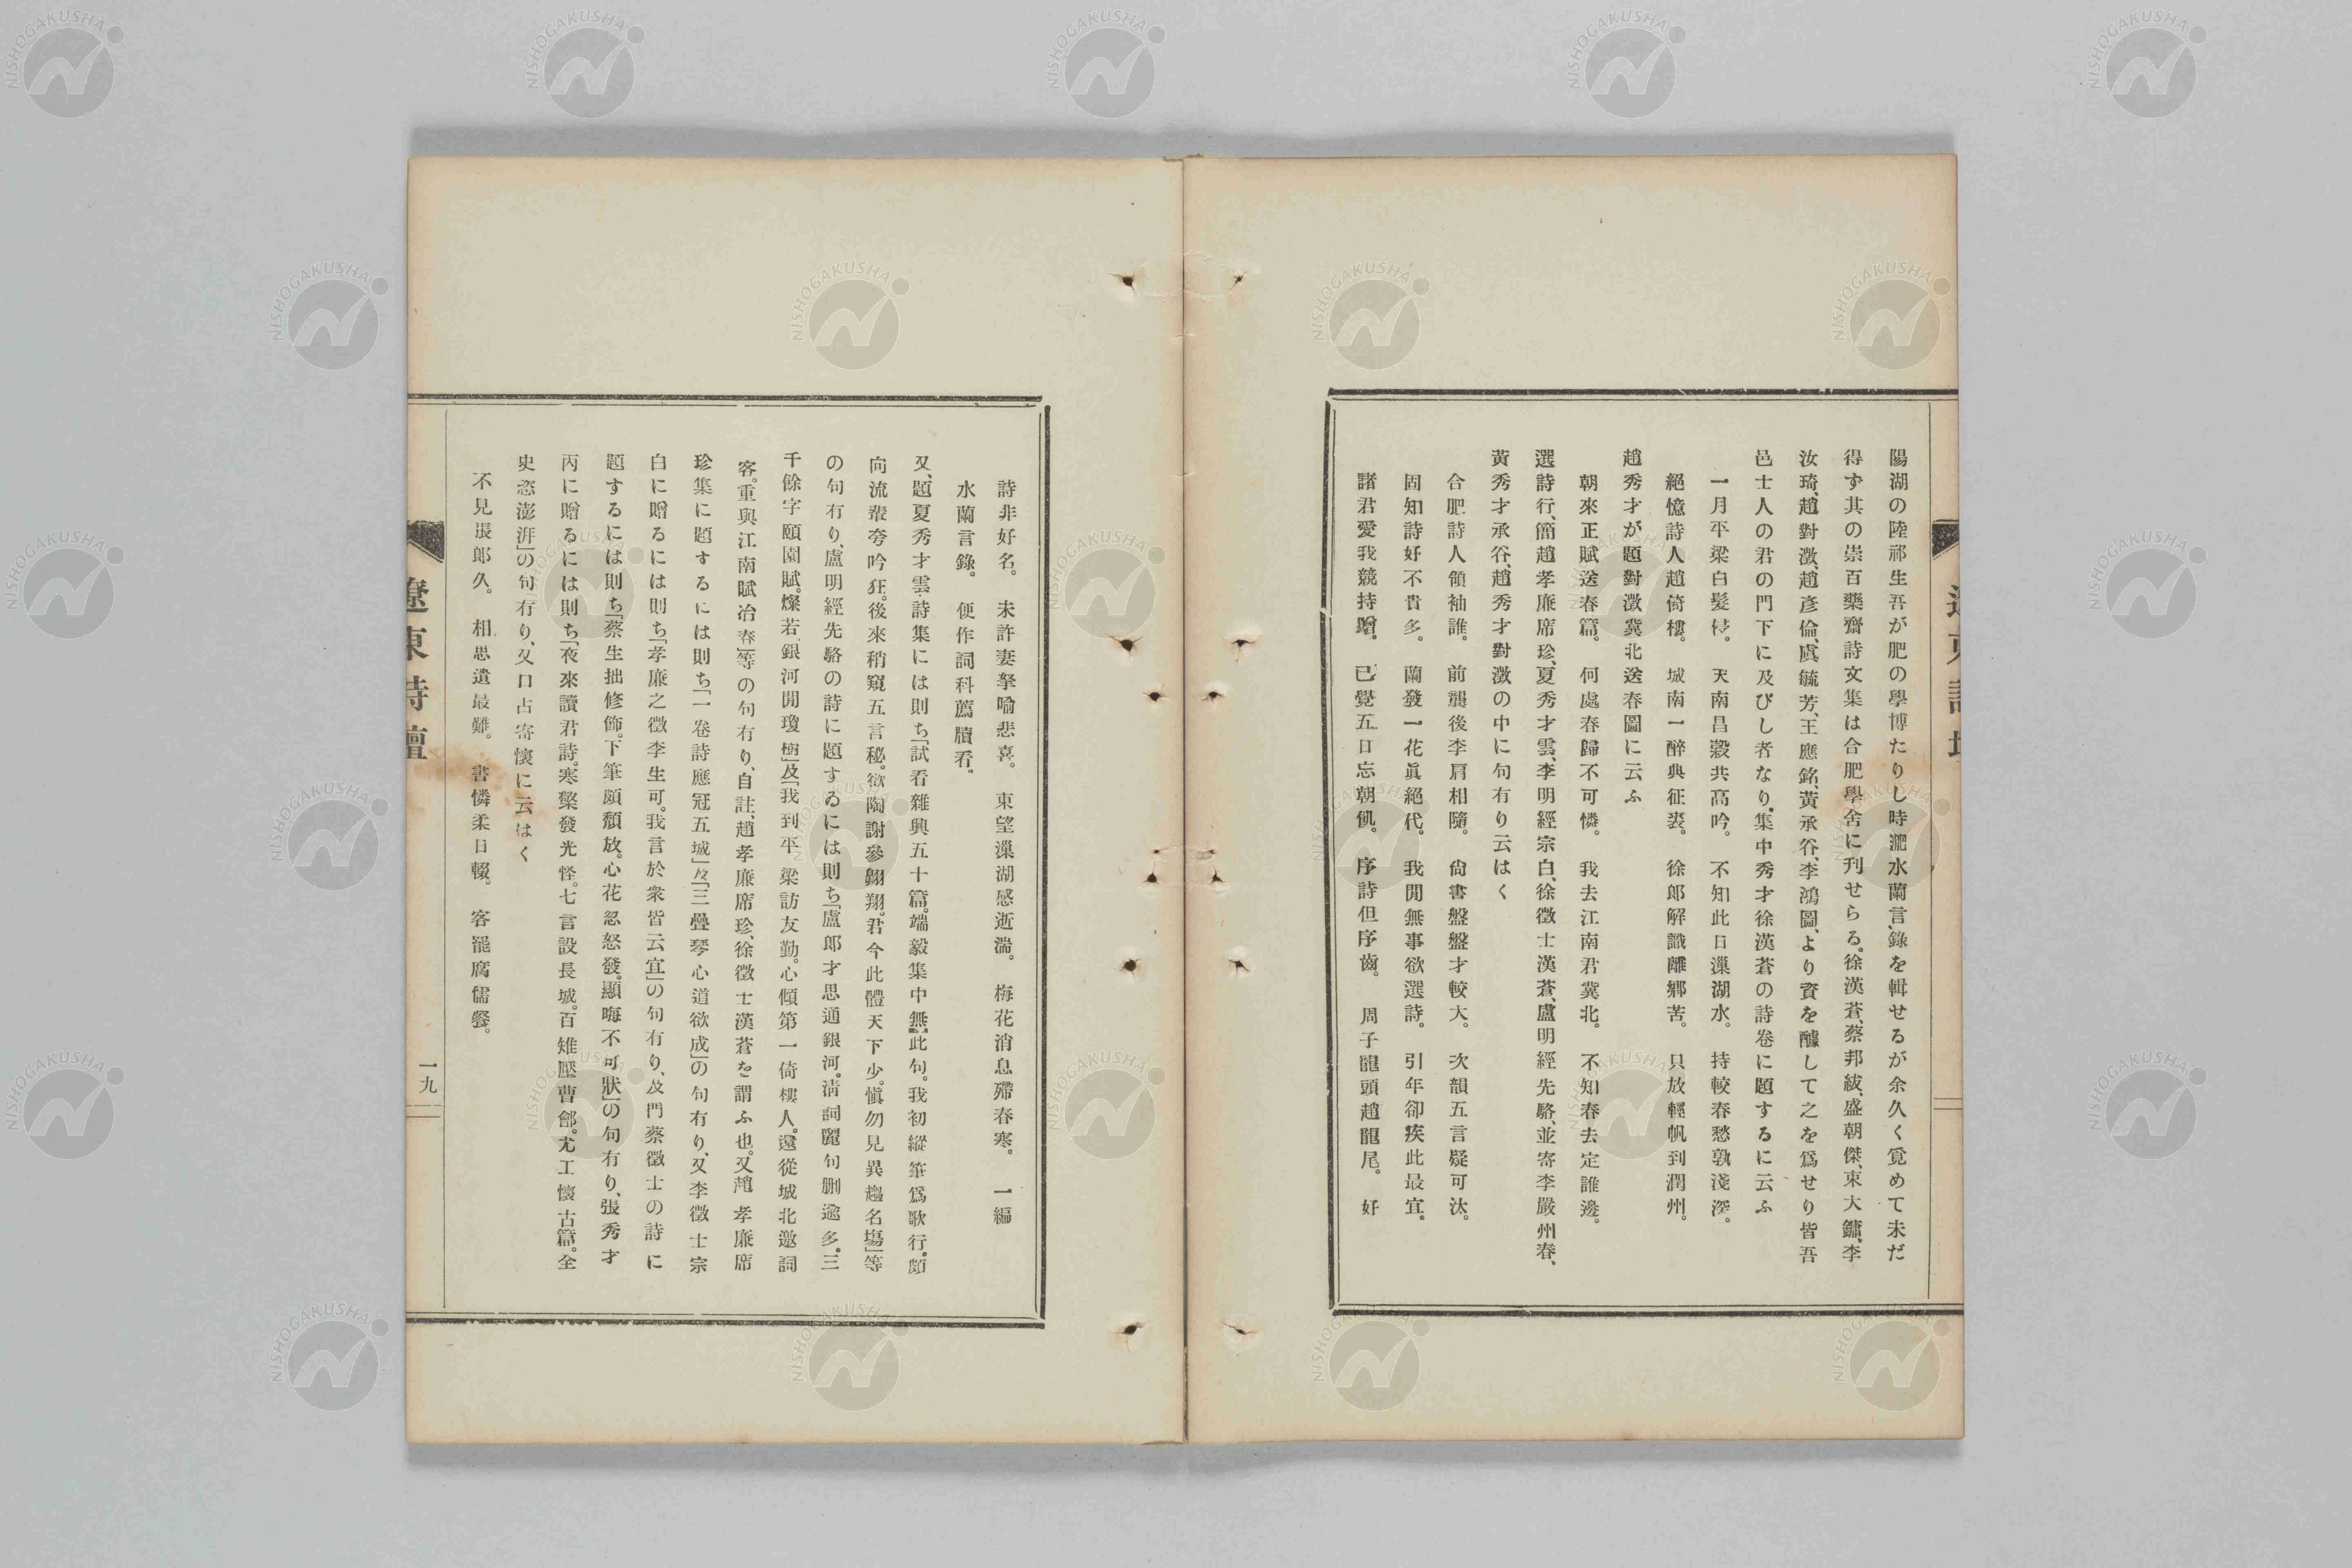 陽湖の陸祁生吾が肥の學博たりし時淝水蘭言錄を輯せるが余久く覓めて未だ
得ず其の崇百藥齋詩文集は合肥學舍に刊せらる。徐漢蒼、蔡邦紱、盛朝傑、東大鏞、李
汝琦、趙對澂、趙彥倫、虞毓芳、王應銘、黃承谷、李鴻圖、より資を醵して之を爲せり皆吾
邑士人の君の門下に及びし者なり。集中秀才徐漢蒼の詩卷に題するに云ふ
一月平梁白髮侵。 天南昌瀫共高吟。 不知此日漅湖水。 持較春愁孰淺深。
絕憶詩人趙倚樓。 城南一醉典征裘。 徐郎解識離鄉苦。 只放輕帆到潤州。
趙秀才が題對澂冀北送春圖に云ふ
朝來正賦送春篇。 何處春歸不可憐。 我去江南君冀北。 不知春去定誰邊。
選詩行、簡趙孝廉席珍、夏秀才雲、李明經宗白、徐徵士漢蒼、盧明經先駱、並寄李嚴州春、
黃秀才承谷、趙秀才對澂の中に句有り云はく
合肥詩人領袖誰。 前龔後李肩相隨。 尙書盤盤才較大。 次韻五言疑可汰。
固知詩好不貴多。 蘭發一花眞絕代。 我閒無事欲選詩。 引年卻疾此最宜。
諸君愛我競持贈。 已覺五日忘朝飢。 序詩但序齒。 周子龍頭趙龍尾。 好
詩非好名。 未許妻孥喻悲喜。 東望漅湖感逝湍。 梅花消息殢春寒。 一編
水蘭言錄。 便作詞科薦牘看。
又、題夏秀才雲詩集には則ち「試看雜興五十篇。端毅集中無此句。我初縱筆爲歌行。頗
向流輩夸吟狂。後來稍窺五言秘。欲陶謝參翺翔。君今此體天下少。愼勿見異趨名場」等
の句有り、盧明經先駱の詩に題するには則ち「盧郎才思通銀河。清詞麗句刪逾多。三
千餘字頤園賦。燦若銀河閒瓊樹」及「我到平梁訪友勤。心傾第一倚樓人。還從城北邀詞
客。重與江南賦冶春」等の句有り、自註、趙孝廉席珍、徐徵士漢蒼を謂ふ也。又趙孝廉席
珍集に題するには則ち「一卷詩應冠五城」及「三疊琴心道欲成」の句有り、又李徵士宗
白に贈るには則ち「孝廉之徵李生可。我言於衆皆云宜」の句有り、及門蔡徵士の詩に
題するには則ち「蔡生拙修飾。下筆頗頹放。心花忽怒發。顯晦不可狀」の句有り、張秀才
丙に贈るには則ち「夜來讀君詩。寒檠發光怪。七言設長城。百雉壓曹鄶。尤工懷古篇。全
史恣澎湃」の句有り、又口占寄懷に云はく
不見張郎久。 相思遣最難。 書憐柔日輟。 客罷腐儒餐。
遼東詩壇
一九